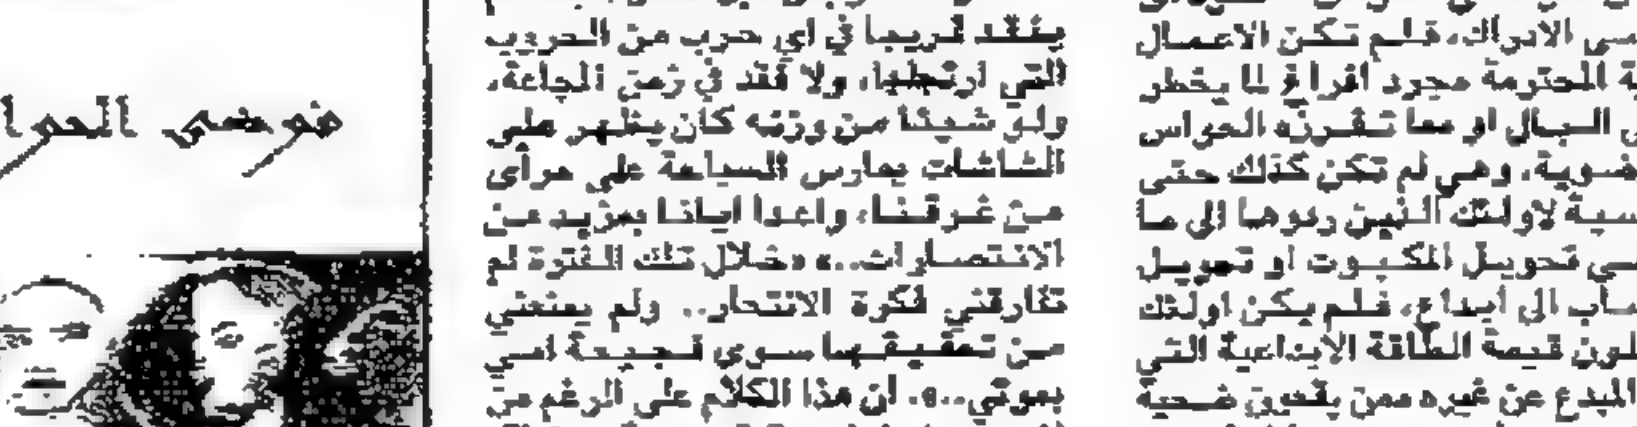 ـسى الادراك، فلم تكن الاعمال
ـة المحترمة مجرد افراغ لما يخطر
ـى البال او مما تفرزه الحواس
ـضوية، وهي لم تكن كذلك حتى
ـسبة لاولئك الذين ردوها الى ما
ـي تحويل المكبوت او تحويل
ـصاب الى ابداع، فلم يكن اولئك
ـلون قيمة الطاقة الابداعية التي
المبدع عن غيره ممن يقعون ضحية
يفقد قريبا في اي حرب من الحروب
التي ارتجلها، ولا فقد في زمن المجاعة،
ولو شيئا من وزنه كان يظهر على
الشاشات يمارس السباحة على مرأى
من غرقنا، واعدا ايانا بمزيد من
الانتصارات..» «خلال تلك الفترة لم
تفارقني فكرة الانتحار.. ولم يمنعني
من تحقيقها سوى فجيعة امي
بموتي..»، ان هذا الكلام على الرغم من
فوضى الحوا